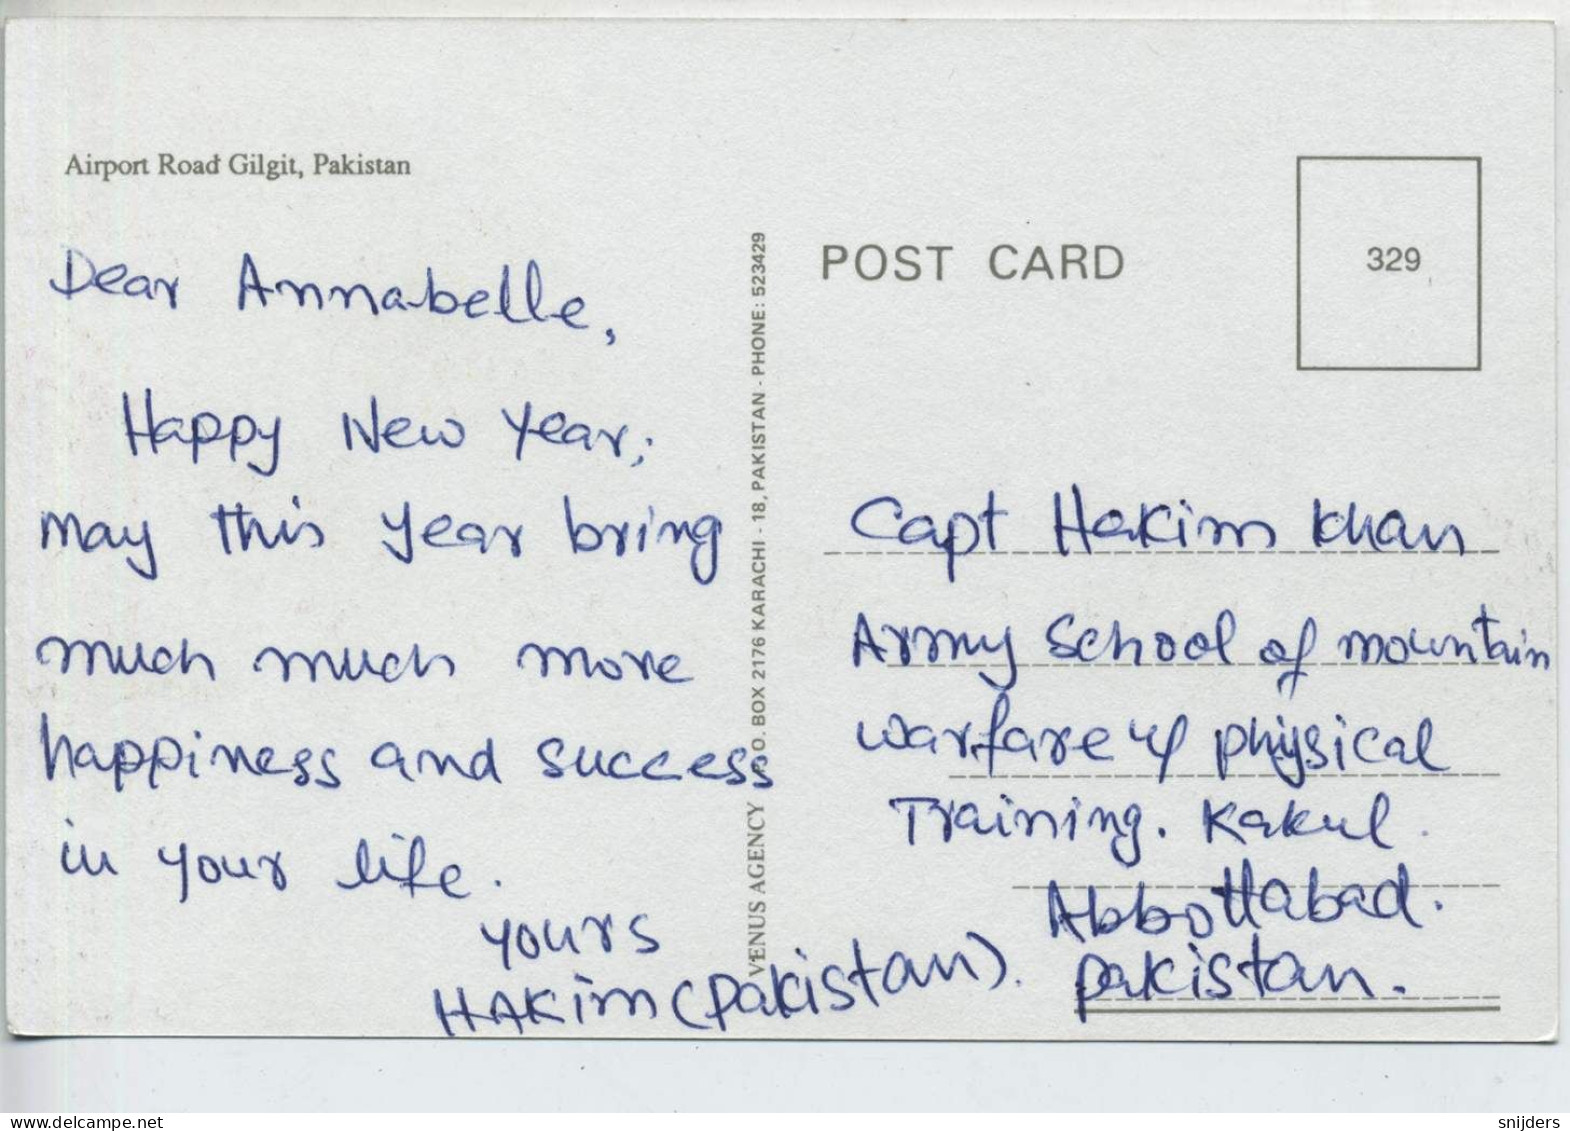 Airport Road Gilgit, Pakistan
Dear Annabelle,
Happy New Year;
may this year bring
much much more
happiness and success
in your life.
yours
HAKim (Pakistan).
VENUS AGENCY P.O. BOX 2176 KARACHI - 18, PAKISTAN - PHONE: 523429
POST CARD
329
Capt Hakim Khan
Army School of mountain
warfare & physical
Training. Kakul.
Abbottabad.
Pakistan.
snijders